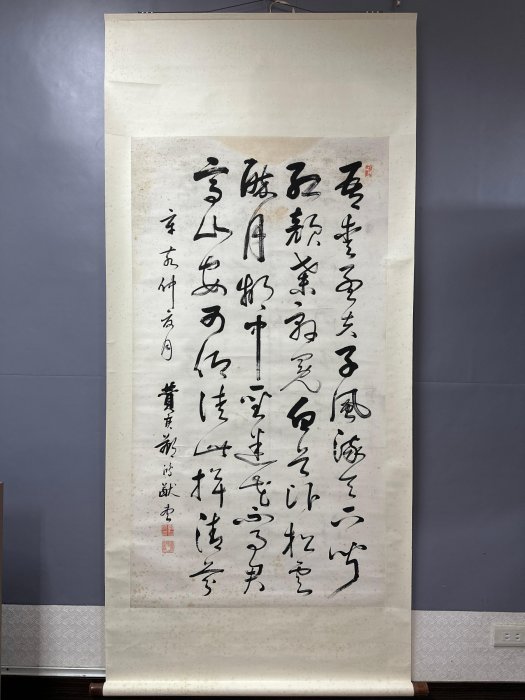 吾愛孟夫子風流天下聞
紅顏棄軒冕白首臥松雲
醉月頻中聖迷花不事君
高山安可仰徒此揖清芬
辛亥仲夏月 鄭鴻猷書